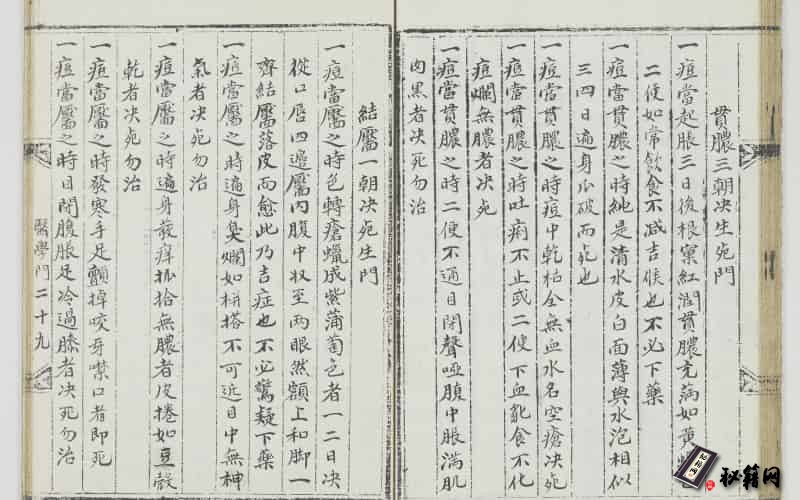 貫膿三朝决生死門
一痘當起脹三日後根窠紅潤貫膿充滿如黃
二便如常飲食不减吉候也不必下藥
一痘當貫膿之時純是清水皮白面薄與水泡相似
三四日遍身爪破而死也
一痘當貫膿之時痘中乾枯全無血水名空瘡决死
一痘當貫膿之時吐痢不止或二便下血乳食不化
痘爛無膿者决死
一痘當貫膿之時二便不通目閉聲啞腹中脹滿肌
肉黑者决死勿治
結靨一朝决死生門
一痘當靨之時色轉瘡蠟成紫葡萄色者一二日决
從口唇四邊靨內腹中收至兩眼然額上和脚一
齊結靨落皮而愈此乃吉症也不必驚疑下藥
一痘當靨之時遍身臭爛如栟搭不可近目中無神
氣者决死勿治
一痘當靨之時遍身發痒抓拾無膿者皮捲如豆殼
乾者决死勿治
一痘當靨之時發寒手足顫掉咬牙噤口者即死
一痘當靨之時目閉腹脹足冷過膝者决死勿治
醫學門二十九
秘籍网